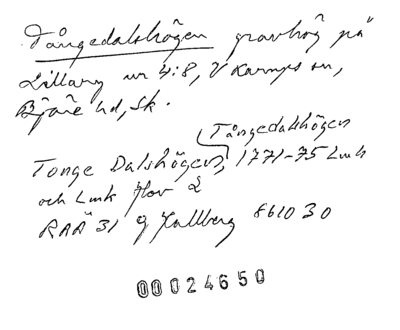 Tångedalshögen gravhög på
Lillaryd nr 4:8, V Karups sn,
Bjäre hd, Sk.
Tångedalshögen
Tonge Dalshögen, 1771-75 Link
och Link Hov 2
RAÄ 31 G Hallberg 861030
00024650